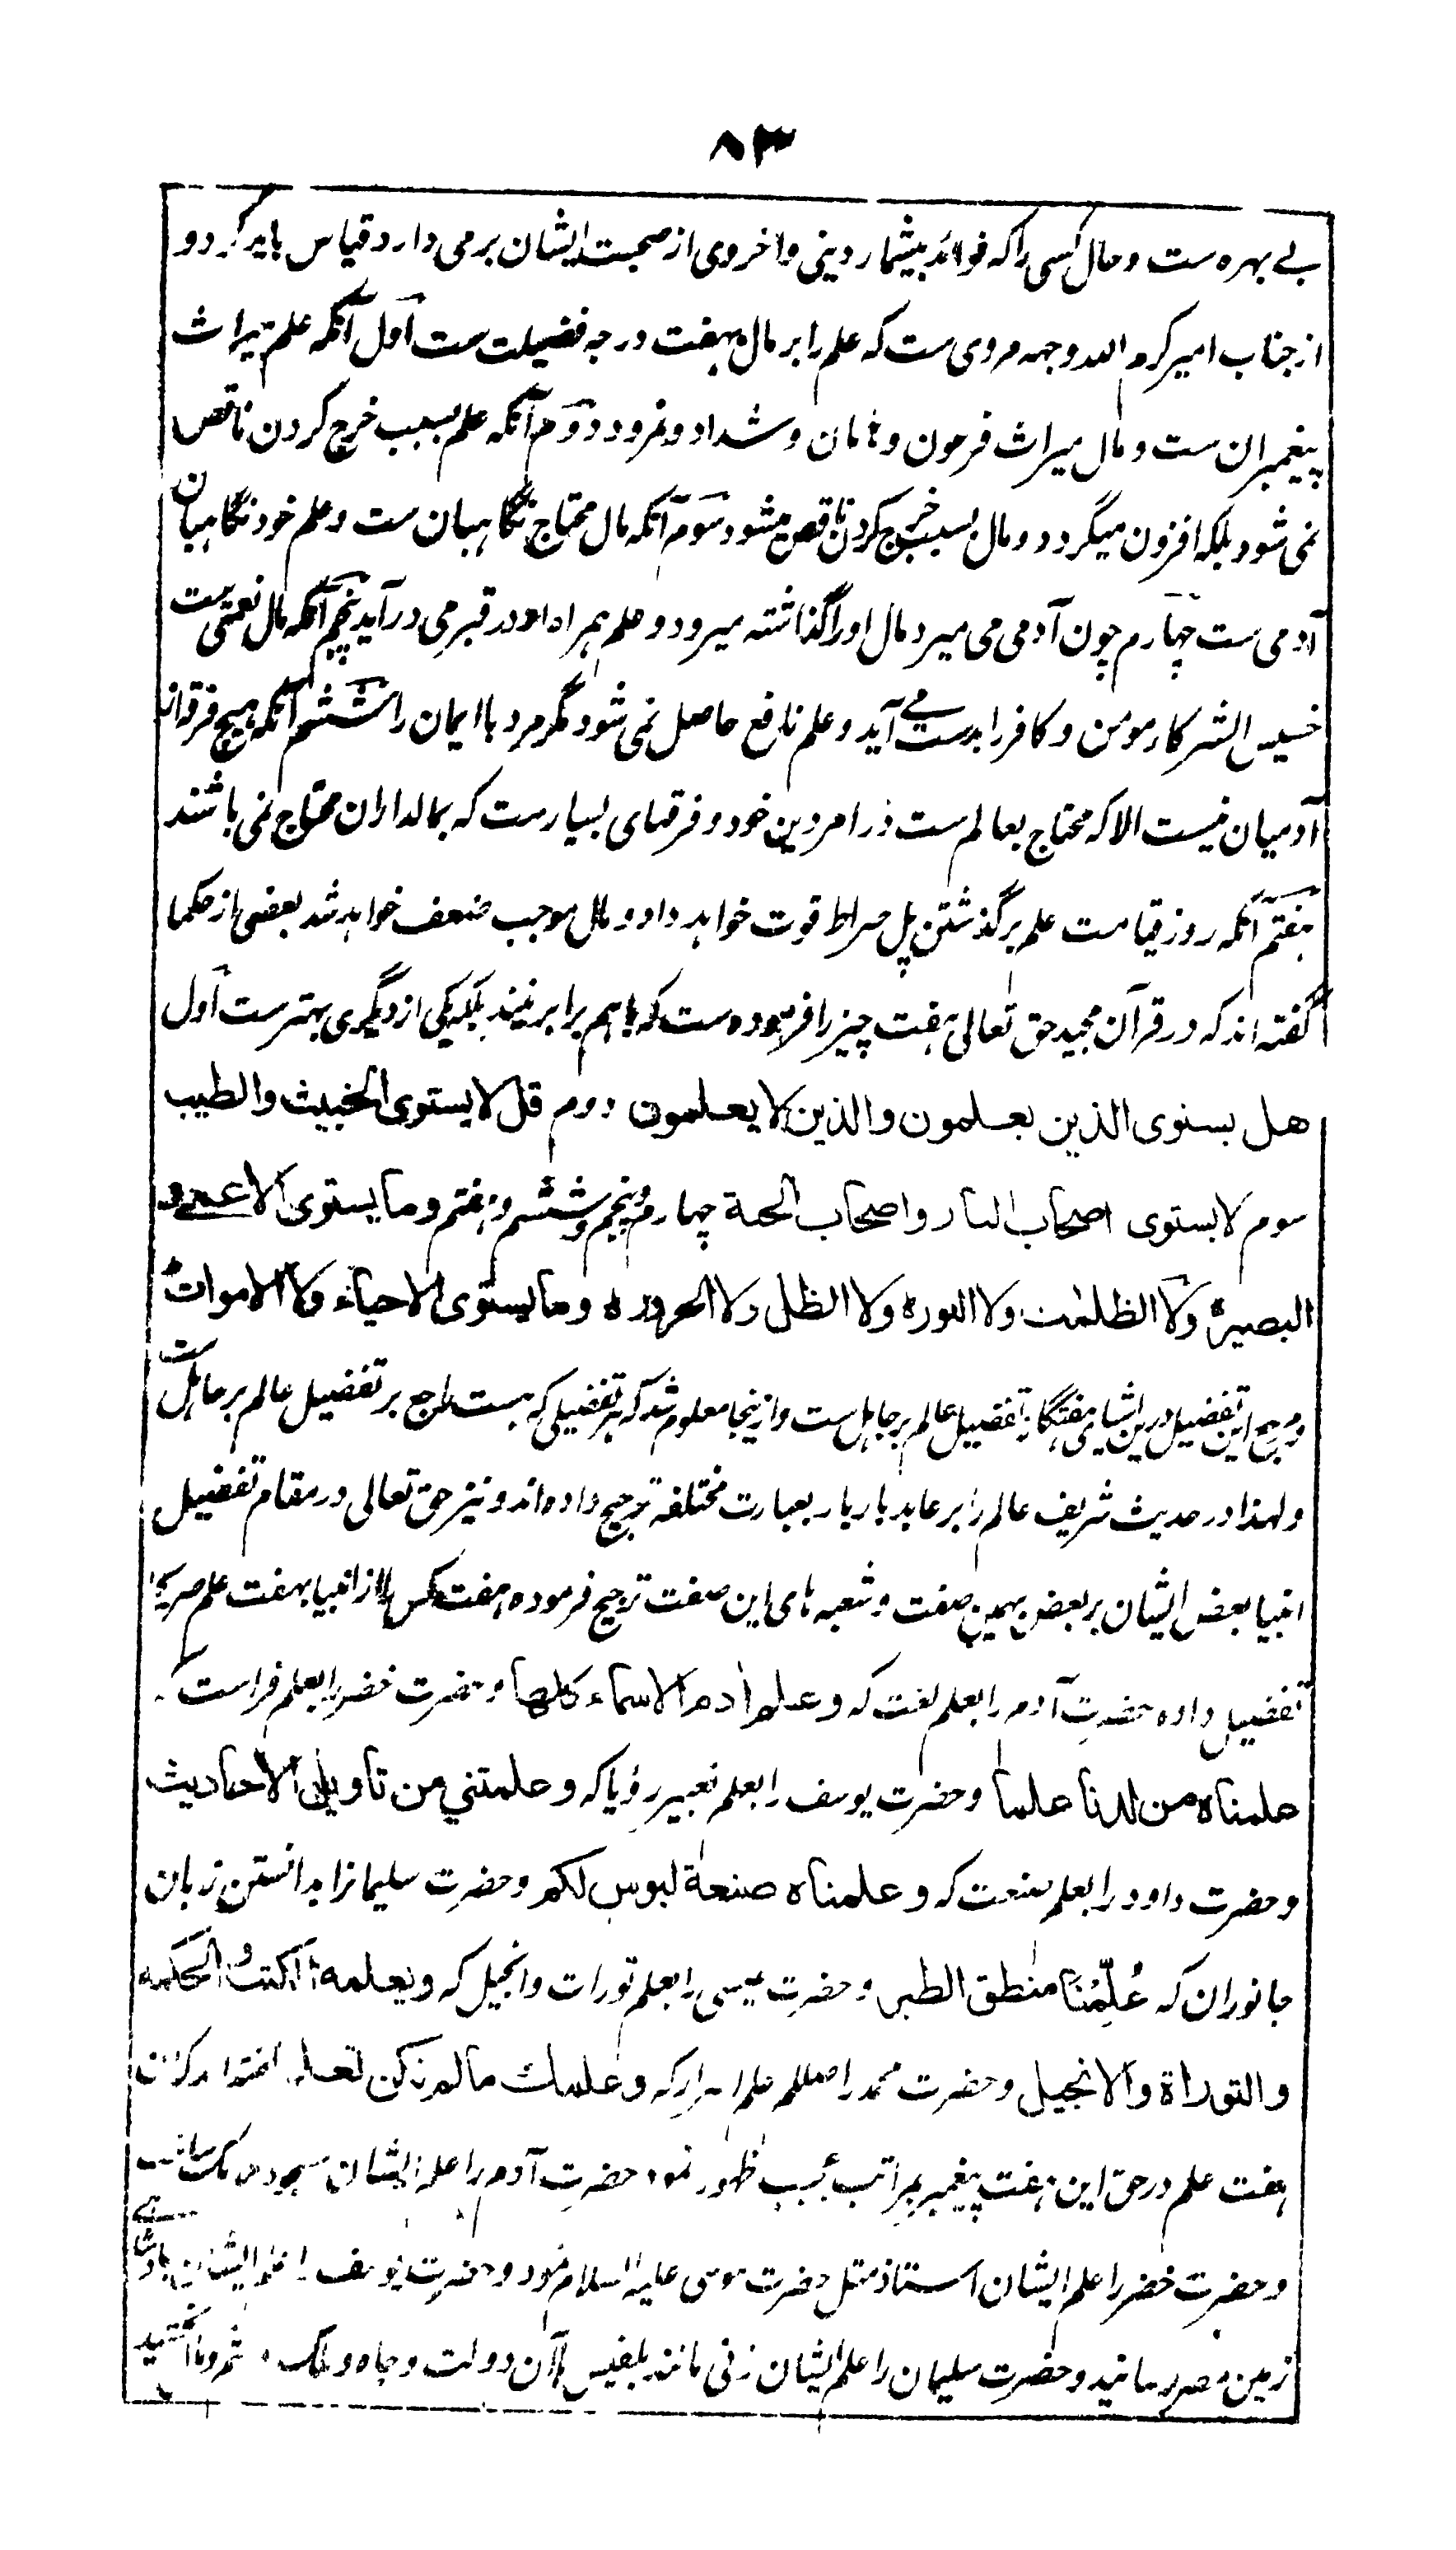 ۸۳
بے بهره ست و حال کسی را که فوائد بیشمار دینی و اخروی از صحبت ایشان برمی دارد قیاس باید کرد و
از جناب امیر کرم الله وجهه مروی ست که علم را بر مال بهفت درجه فضیلت ست اول آنکه علم میراث
پیغمبران ست و مال میراث فرعون و هامان و شداد و نمرود دوم آنکه علم بسبب خرج کردن ناقص
نمی شود بلکه افزون میگردد و مال بسبب خرج کردن ناقص میشود سوم آنکه مال محتاج نگاهبان ست و علم خود نگاهبان
آدمی ست چهارم چون آدمی می میرد مال او را گذاشته میرود و علم همراه او در قبر می در آید پنجم آنکه مال نعمتی ست
خسیس الشرکا مومن و کافر را بدست می آید و علم نافع حاصل نمی شود مگر مرد با ایمان را ششم آنکه هیچ فرقه از
آدمیان نیست الا که محتاج بعالم ست در امر دین خود و فرقهای بسیارست که بمالداران محتاج نمی باشند
هفتم آنکه روز قیامت علم بر گذشتن پل صراط قوت خواهد داد و مال موجب ضعف خواهد شد بعضی از حکما
گفته اند که در قرآن مجید حق تعالی هفت چیز را فرموده ست که باهم برابر نیند بلکه یکی از دیگری بهتر ست اول
هل یستوی الذین یعلمون والذین لا یعلمون دوم قل لا یستوی الخبیث والطیب
سوم لا یستوی اصحاب النار واصحاب الجنة چهارم و پنجم و ششم و هفتم وما یستوی الاعمے و
البصیره ولا الظلمٰت ولا النوره ولا الظل ولا الحروره وما یستوی الاحیاء ولا الاموات
و مرجع این تفضیل درین اشیای هفتگانه تفضیل عالم بر جاهل ست و ازینجا معلوم شد که هر تفضیلی که هست راجع بر تفضیل عالم بر جاهل ست
ولهذا در حدیث شریف عالم را بر عابد بار بار بعبارت مختلفه ترجیح داده اند و نیز حق تعالی در مقام تفضیل
انبیا بعض ایشان بر بعض بهمین صفت و شعبه های این صفت ترجیح فرموده هفت کس را از انبیا بهفت علم صریحا
تفضیل داده حضرت آدم را بعلم لغت که وعلم آدم الاسماء کلها و حضرت خضر را بعلم فراست که
علمناه من لدنا علما و حضرت یوسف را بعلم تعبیر رؤیا که وعلمتني من تاویل الاحادیث
و حضرت داود را بعلم صنعت که وعلمناه صنعة لبوس لکم و حضرت سلیمانرا بدانستن زبان
جانوران که عُلِّمْنَا منطق الطیر و حضرت عیسی را بعلم تورات و انجیل که ویعلمه الکتٰب والحکمة
والتوراة والانجیل و حضرت محمد را صلعم علم اسرار که وعلمك مالم تکن تعلم
هفت علم در حق این هفت پیغمبر بمراتب عجیب ظهور نمود حضرت آدم را علم ایشان مسجود ملائک ساخت
و حضرت خضر را علم ایشان استاذ مثل حضرت موسی علیه السلام نمود و حضرت یوسف را علم ایشان بادشاهی
زمین مصر رسانید و حضرت سلیمان را علم ایشان زنی مانند بلقیس باآن دولت و جاه و ملک